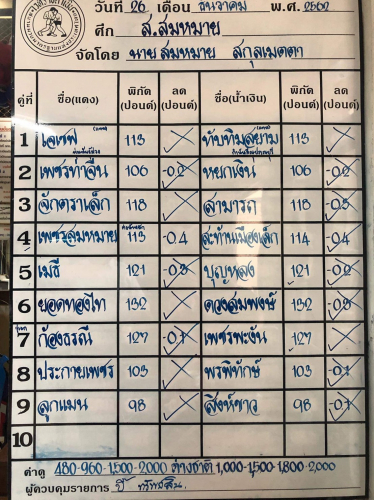 วันที่ 26 เดือน ธันวาคม พ.ศ. 2562
ศึก ส.สมหมาย
จัดโดย นายสมหมาย สกุลเมตตา
คู่ที่ ชื่อ(แดง) พิกัด (ปอนด์) ลด (ปอนด์) ชื่อ(น้ำเงิน) พิกัด (ปอนด์) ลด (ปอนด์)
1 113 ทับทิมสยาม 113
2 เพชรท่าจีน 106 -0.2 หยกเงิน 106 -0.2
3 จักตราเล็ก 118 สามารถ 118 -0.5
4 เพชรสมหมาย 113 -0.4 สะท้านเมืองเล็ก 114 -0.4
5 เมธี 121 -0.3 บุญหลง 121 -0.2
6 ยอดทองไท 132 ดวงสมพงษ์ 132 -0.3
7 ก้องธรณี 127 -0.1 เพชรพะงัน 127
8 ประกายเพชร 103 พรพิทักษ์ 103 -0.1
9 ลูกแมน 98 สิงห์ขาว 98 -0.1
10
ค่าดู 480-960-1,500-2000 ต่างชาติ 1,000-1,500-1,800-2,000
ผู้ควบคุมรายการ บี้ ทรัพย์สิน.